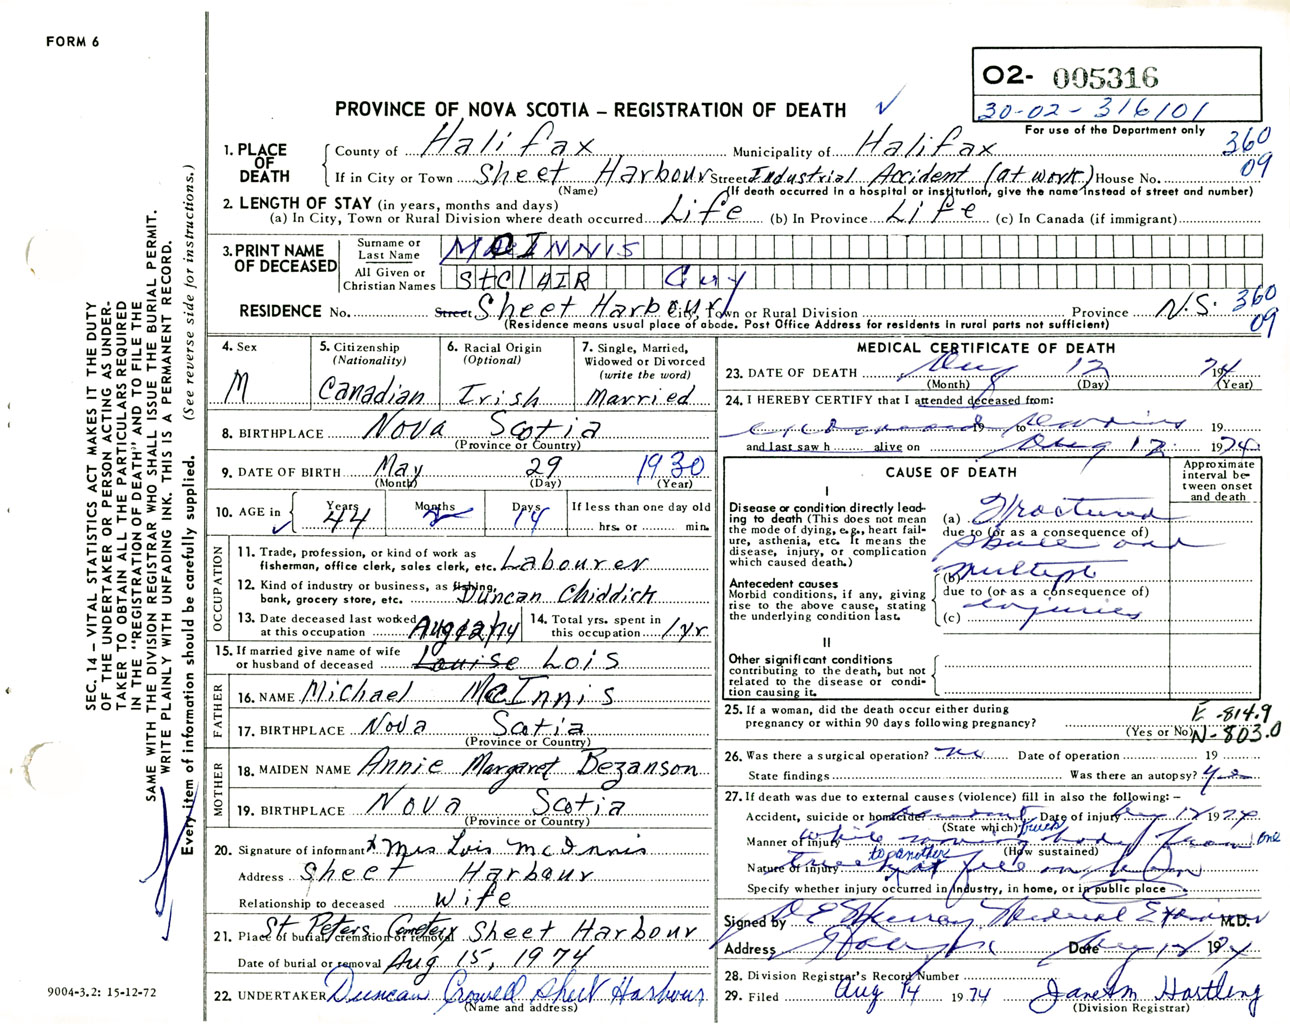 FORM 6
O2- 005316
30-02-316101
For use of the Department only
PROVINCE OF NOVA SCOTIA – REGISTRATION OF DEATH
360
09
1. PLACE OF DEATH
County of Halifax Municipality of Halifax
If in City or Town Sheet Harbour Street Industrial Accident (at work) House No.
(Name) (If death occurred in a hospital or institution, give the name instead of street and number)
2. LENGTH OF STAY (in years, months and days)
(a) In City, Town or Rural Division where death occurred Life (b) In Province Life (c) In Canada (if immigrant)
3. PRINT NAME OF DECEASED
Surname or Last Name McINNIS
All Given or Christian Names StClAIR Guy
RESIDENCE No. Street Sheet Harbour City, Town or Rural Division Province N.S. 360
09
(Residence means usual place of abode. Post Office Address for residents in rural parts not sufficient)
4. Sex
M
5. Citizenship
(Nationality)
Canadian
6. Racial Origin
(Optional)
Irish
7. Single, Married, Widowed or Divorced
(write the word)
Married
8. BIRTHPLACE Nova Scotia
(Province or Country)
9. DATE OF BIRTH May 29 1930
(Month) (Day) (Year)
10. AGE in
Years Months Days If less than one day old
44 2 14 hrs. or min.
OCCUPATION
11. Trade, profession, or kind of work as
fisherman, office clerk, sales clerk, etc. Labourer
12. Kind of industry or business, as fishing,
bank, grocery store, etc. Duncan Chiddick
13. Date deceased last worked
at this occupation Aug 12/74
14. Total yrs. spent in
this occupation 1 yr.
15. If married give name of wife
or husband of deceased Louise Lois
FATHER
16. NAME Michael McInnis
17. BIRTHPLACE Nova Scotia
(Province or Country)
MOTHER
18. MAIDEN NAME Annie Margaret Bezanson
19. BIRTHPLACE Nova Scotia
(Province or Country)
20. Signature of informant x Mrs Lois McInnis
Address Sheet Harbour
Relationship to deceased Wife
21. Place of burial, cremation or removal St Peters Cemetery Sheet Harbour
Date of burial or removal Aug 15, 1974
22. UNDERTAKER Duncan Crowell Sheet Harbour
(Name and address)
MEDICAL CERTIFICATE OF DEATH
23. DATE OF DEATH Aug 12 1974
(Month) (Day) (Year)
8
24. I HEREBY CERTIFY that I attended deceased from:
19 to 19
and last saw h alive on Aug 12 1974
CAUSE OF DEATH
Approximate interval between onset and death
I
Disease or condition directly leading to death (This does not mean the mode of dying, e.g., heart failure, asthenia, etc. It means the disease, injury, or complication which caused death.)
(a) Fractured
due to (or as a consequence of)
skull and
Antecedent causes
Morbid conditions, if any, giving rise to the above cause, stating the underlying condition last.
(b) multiple
due to (or as a consequence of)
(c) injuries
II
Other significant conditions
contributing to the death, but not related to the disease or condition causing it.
25. If a woman, did the death occur either during
pregnancy or within 90 days following pregnancy?
(Yes or No)
E-814.9
N-803.0
26. Was there a surgical operation? no Date of operation 19
State findings Was there an autopsy?
27. If death was due to external causes (violence) fill in also the following: –
Accident, suicide or homicide accident Date of injury Aug 12 1974
(State which)
Manner of injury while moving body from one
truck
(How sustained)
Nature of injury to another
Specify whether injury occurred in industry, in home, or in public place
Signed by Medical Examiner M.D.
Address Halifax Date Aug 12 1974
28. Division Registrar's Record Number
29. Filed Aug 14 1974 Janet M Hartling
(Division Registrar)
SEC. 14 – VITAL STATISTICS ACT MAKES IT THE DUTY
OF THE UNDERTAKER OR PERSON ACTING AS UNDER-
TAKER TO OBTAIN ALL THE PARTICULARS REQUIRED
IN THE "REGISTRATION OF DEATH" AND TO FILE THE
SAME WITH THE DIVISION REGISTRAR WHO SHALL ISSUE THE BURIAL PERMIT.
WRITE PLAINLY WITH UNFADING INK. THIS IS A PERMANENT RECORD.
Every item of information should be carefully supplied. (See reverse side for instructions.)
9004-3.2: 15-12-72